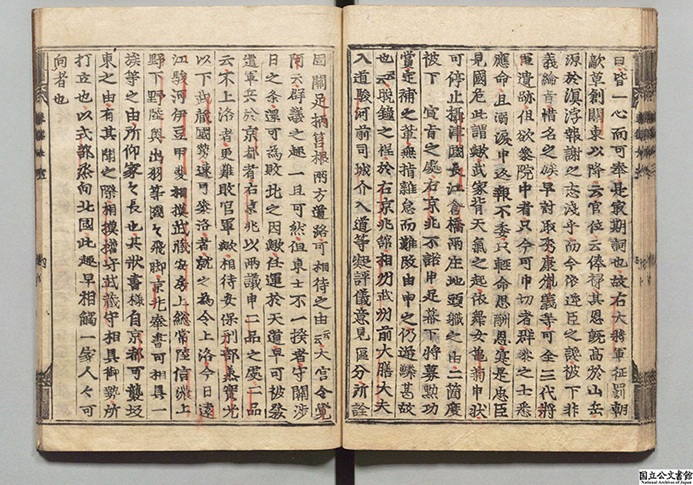 曰皆一心而可奉是最期詞也故右大將軍征罰朝
敵草創關東以降云官位云俸祿其恩既高於山岳
深於溟渤報謝之志淺乎而今依逆臣之讒被下非
義綸旨惜名之族早討取秀康胤義等可全三代將
軍遺跡但欲參院中者只今可申切者群參之士悉
應命且溺涙申返報不委只輕命思酬恩寔是忠臣
見國危此謂歟武家背天氣之起依舞女龜菊申状
可停止攝津國長江倉橋兩庄地頭職之由二箇度
被下 宣旨之處右京兆不諾申是幕下將軍募勲功
賞定補之輩無指雜怠而難改由申之仍逆鱗甚故
也云々晩鐘之程於右京兆舘相州武州前大膳大夫
入道駿河前司城介入道等凝評儀意見區分所詮
固關足柄筥根兩方道路可相待之由云々大官令覺
阿云群議之趣一旦可然但東士不一揆者守關渉
日之條還可為敗北之因歟任運於天道早可被發
遣軍兵於京都者右京兆以兩議申二品之處二品
云不上洛者更難敗官軍歟相待安保刑部丞實光
以下武藏國勢速可參洛者就之為令上洛今日遠
江駿河伊豆甲斐相摸武藏安房上総常陸信濃上
野下野陸奥出羽等國々飛脚京兆奉書可相具一
族等之由所仰家々長也其状書樣自京都可襲坂
東之由有其聞之間相摸權守武藏守相具御勢所
打立也以式部丞差向北國此趣早相觸一家人々可
向者也
国立公文書館
National Archives of Japan